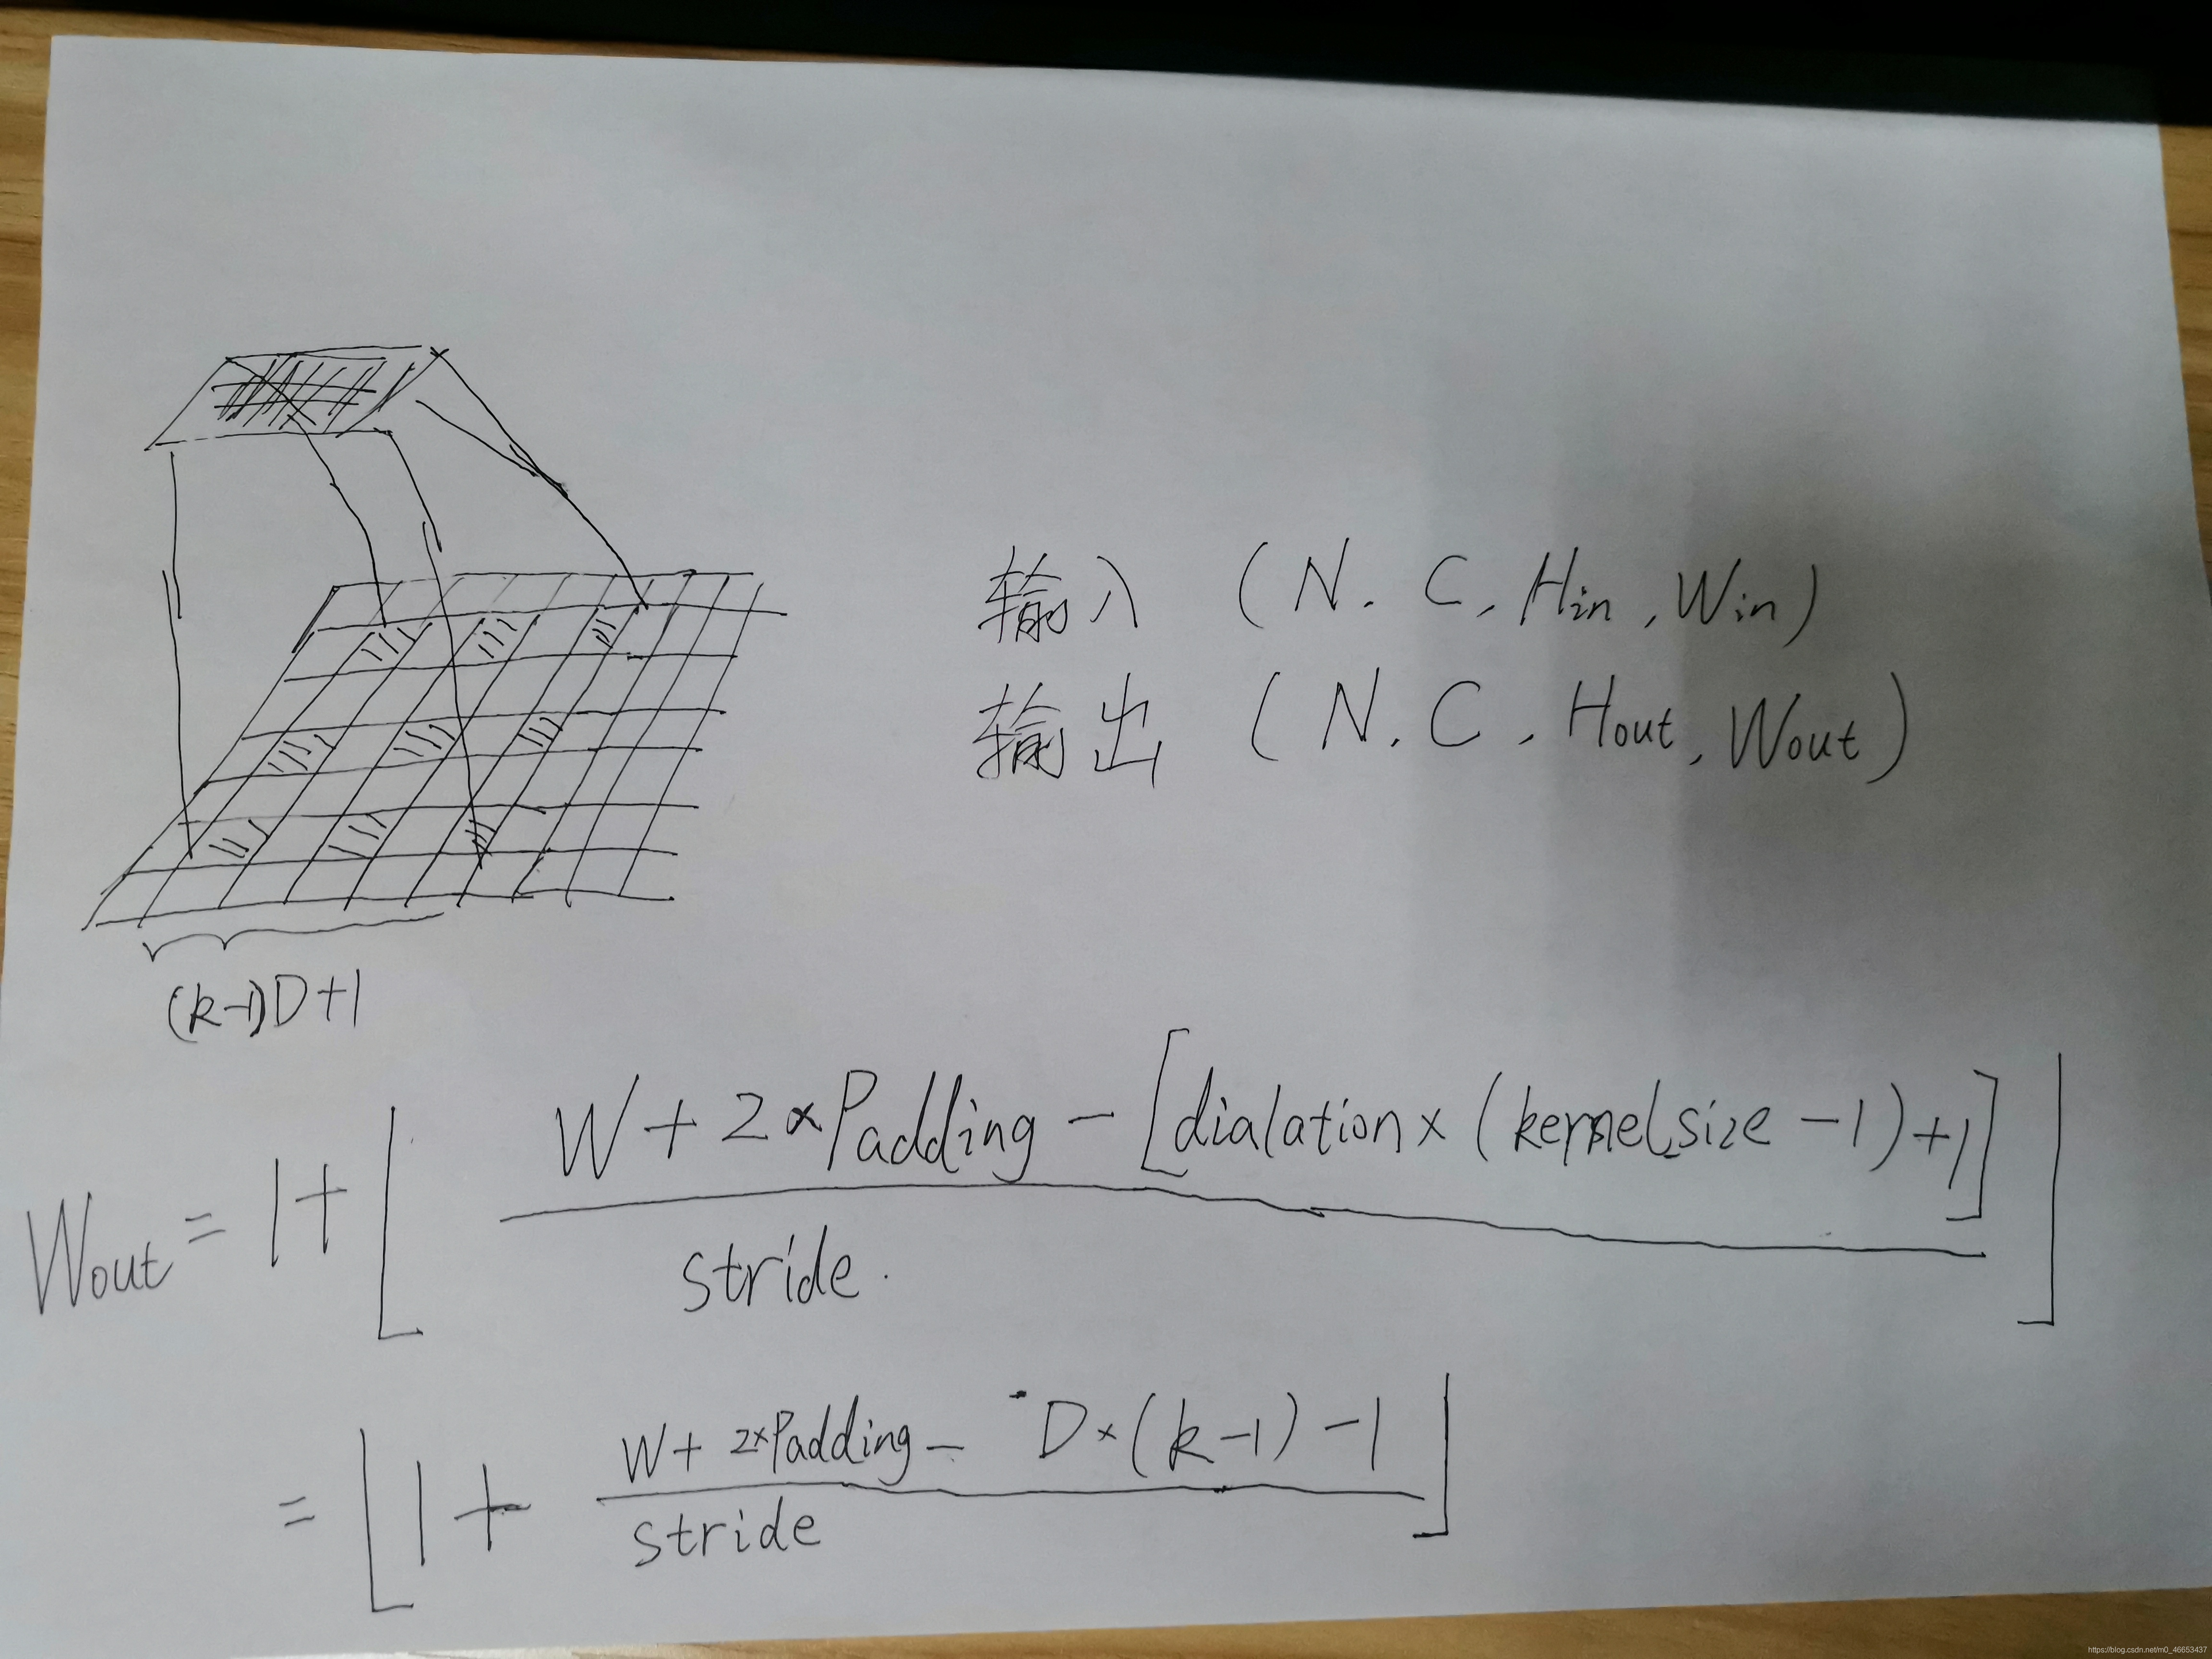 输入 (N. C, Hin, Win)
输出 (N. C, Hout, Wout)
(k-1)D+1
Wout = 1+⌊ W+2×Padding-[dialation×(kernel_size-1)+1] / stride. ⌋
= ⌊ 1+ W+2×Padding- D×(k-1)-1 / stride ⌋
https://blog.csdn.net/m0_46653437